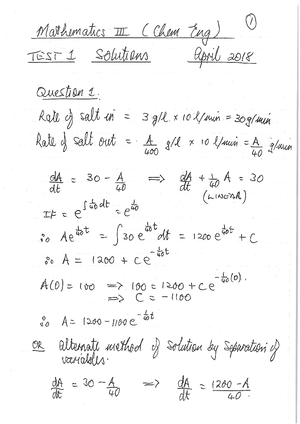 ①
Mathematics III (Chem Eng)
TEST 1 Solutions April 2018
Question 1.
Rate of salt in = 3 g/l × 10 l/min = 30 g/min
Rate of salt out = A/400 g/l × 10 l/min = A/40 g/min
dA/dt = 30 - A/40 ⇒ dA/dt + 1/40 A = 30
(LINEAR)
IF = e^∫1/40 dt = e^t/40
∴ Ae^1/40t = ∫30 e^1/40t dt = 1200 e^1/40t + C
∴ A = 1200 + c e^-1/40t
A(0) = 100 ⇒ 100 = 1200 + c e^-1/40(0).
⇒ C = -1100
∴ A = 1200 - 1100 e^-1/40t
OR alternate method of solution by separation of
variables.
dA/dt = 30 - A/40 ⇒ dA/dt = 1200 - A/40.